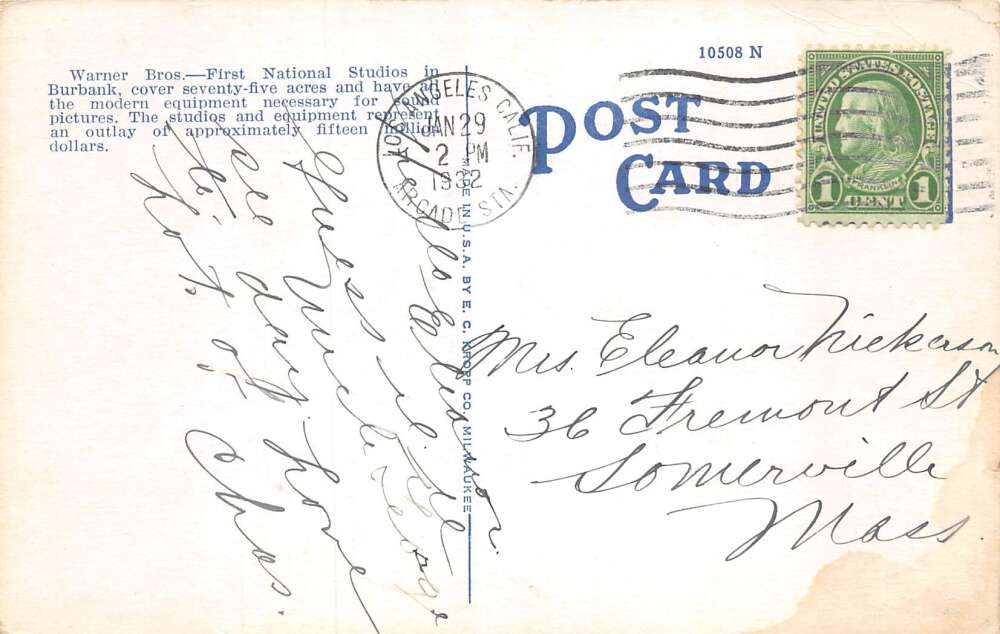 Warner Bros.—First National Studios in
Burbank, cover seventy-five acres and have all
the modern equipment necessary for sound
pictures. The studios and equipment represent
an outlay of approximately fifteen million
dollars.
10508 N
POST
CARD
LOS ANGELES CALIF.
JAN 29
2 PM
1932
ARCADE STA.
UNITED STATES POSTAGE
FRANKLIN
1 CENT 1
MADE IN U.S.A. BY E. C. KROPP CO., MILWAUKEE
Hello Eleanor
Guess
Uncle George
Love
Lots of
Chas.
Mrs. Eleanor Nickerson
36 Fremont St
Somerville
Mass